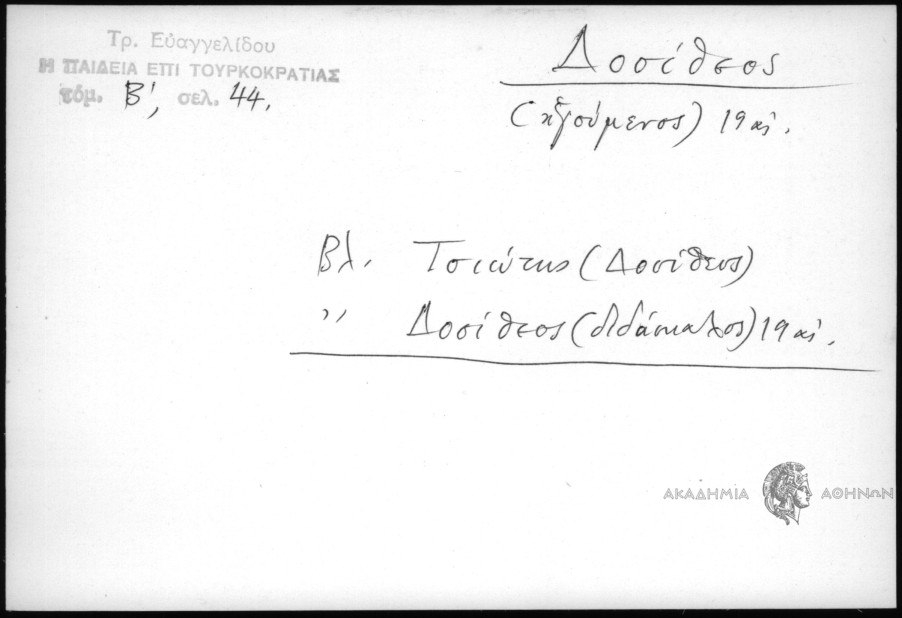 Τρ. Εὐαγγελίδου
Η ΠΑΙΔΕΙΑ ΕΠΙ ΤΟΥΡΚΟΚΡΑΤΙΑΣ
τόμ. Β', σελ. 44.
Δοσίθεος
(ἡγούμενος) 19 αἰ.
Βλ. Τσιώτης (Δοσίθεος)
,, Δοσίθεος (διδάσκαλος) 19 αἰ.
ΑΚΑΔΗΜΙΑ ΑΘΗΝΩΝ